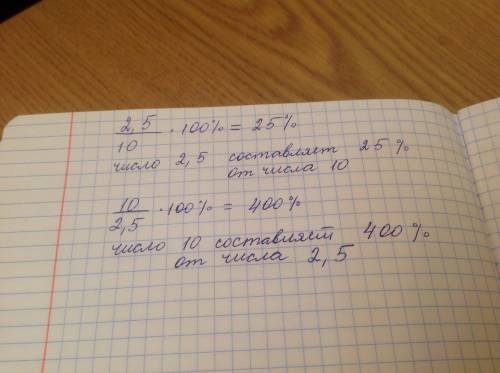 2,5
—— · 100% = 25%
10
число 2,5 составляет 25%
от числа 10
10
—— · 100% = 400%
2,5
число 10 составляет 400%
от числа 2,5